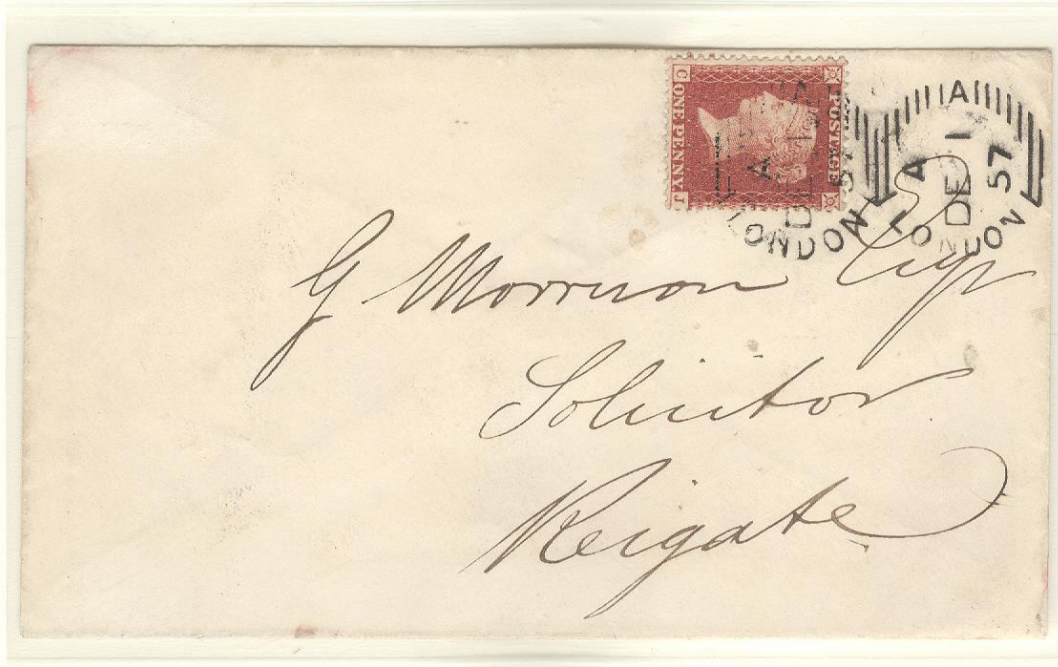 POSTAGE
ONE PENNY
C J
A
A
DE 1
57
LONDON
A
A
DE 1
57
LONDON
G Morrison Esqr
Solicitor
Reigate